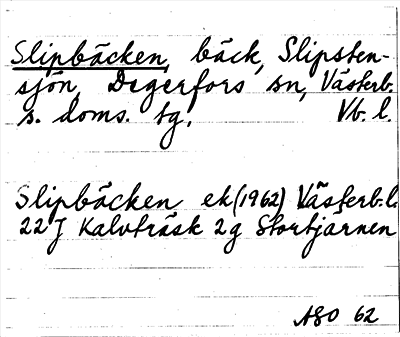 Slipbäcken, bäck, Slipsten-
sjön, Degerfors sn, Västerb.
s. doms. tg. Vb. l.
Slipbäcken ek (1962) Västerb. l.
22 J Kalvträsk 2 g Stortjärnen
ASO 62